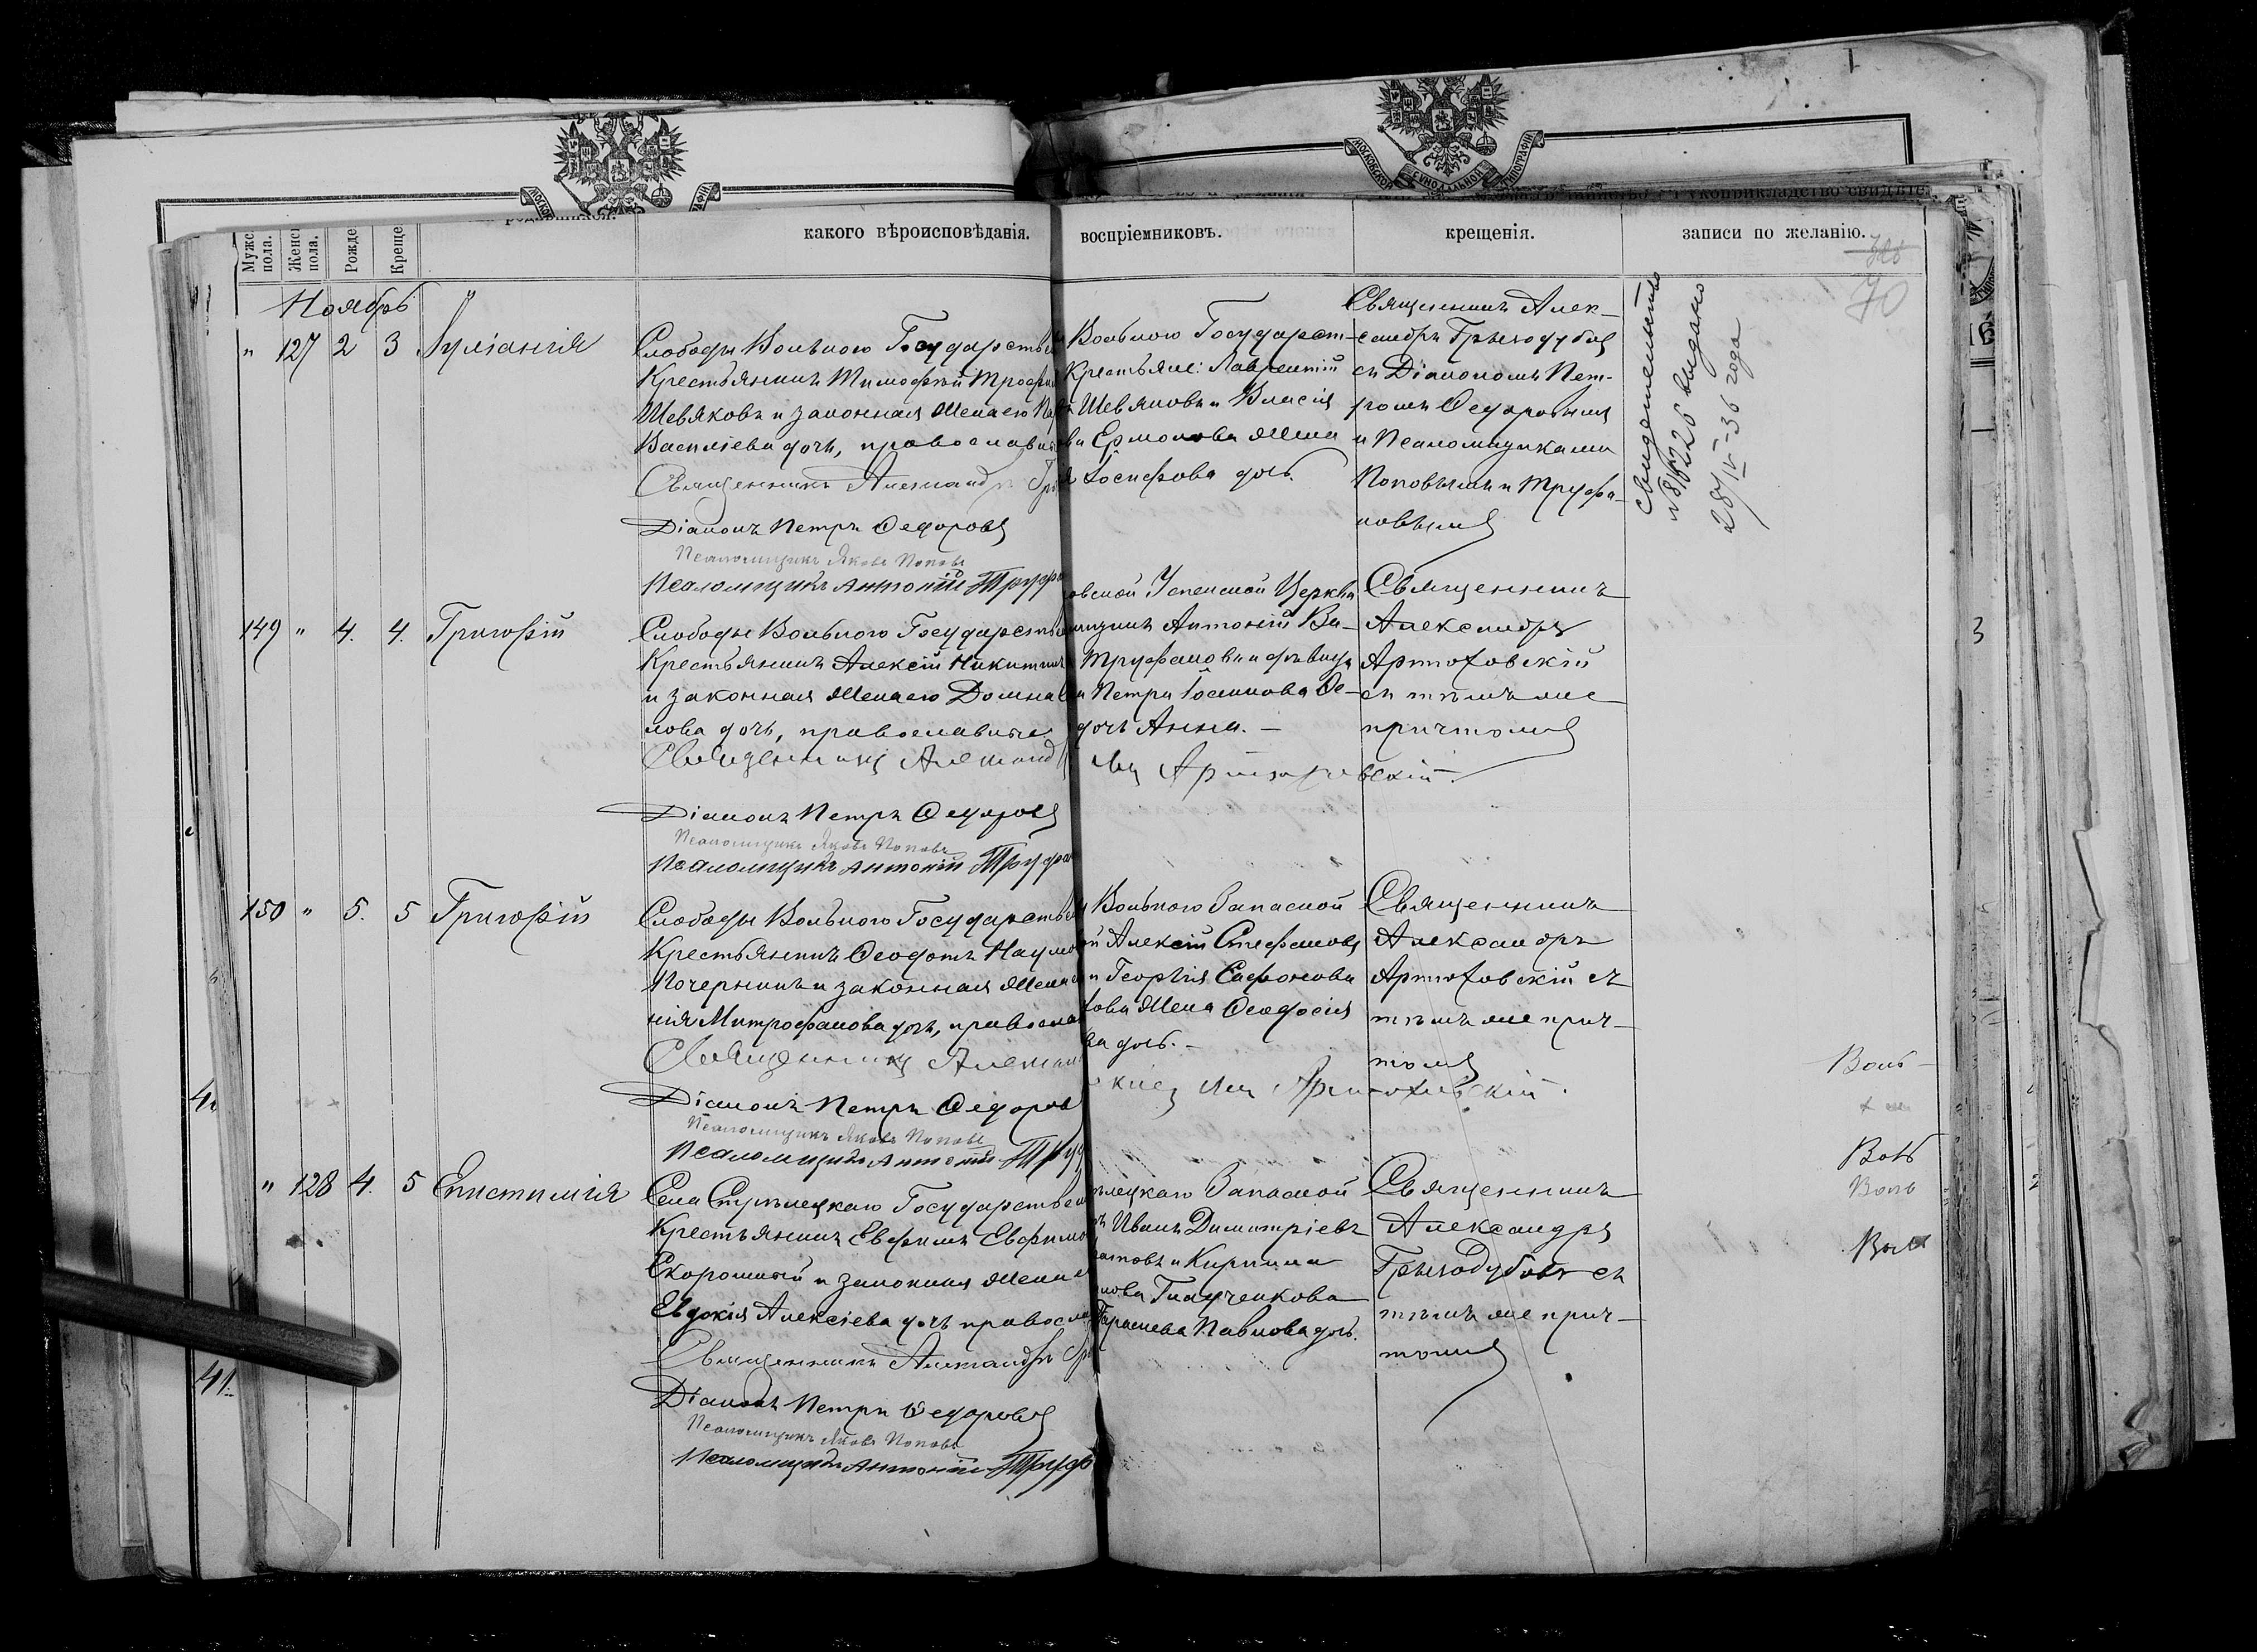 МОСКОВСКОЙ СѴНОДАЛЬНОЙ ТИПОГРАФІИ
Мужс. пола.
Женс. пола.
Рожде
Креще
какого вѣроисповѣданія.
воспріемниковъ.
крещенія.
записи по желанію.
70
Ноябрь
" 127 2 3 Іуліанія
Слободы Вольного Государствен
Крестьянинъ Тимофѣй Трофи
Шевяковъ и законная жена его
Василіева дочь, православные
Священникъ Александръ
Діаконъ Петръ Ѳедоровъ
Псаломщикъ Яковъ Поповъ
Псаломщикъ Антоній Труфа
Вольного Государст-
Крестьяне: Лаврентій
Шевяковъ и Власія
Ермолова жена
Іосифова дочь.
Священникъ Алек-
сандръ Грызодубовъ
съ Діакономъ Пет-
ромъ Ѳедоровымъ
и Псаломщиками
Поповымъ и Труфа-
новымъ
свидетельство
выдано
28/IV-36 года
149 " 4. 4. Григорій
Слободы Вольного Государствен
Крестьянинъ Алексій Никитинъ
и законная жена его Домна
нова дочь, православные
Священникъ Александ
ръ Артюховскій.
Діаконъ Петръ Ѳедоровъ
Псаломщикъ Яковъ Поповъ
Псаломщикъ Антоній Труфа
овской Успенской Церкви
мщикъ Антоній Ва-
Труфановъ и дѣвица
Петра Іоаннова Ѳе-
дочь Анна. -
Священникъ
Александръ
Артюховскій
съ тѣмъ же
причтомъ
150 " 5. 5 Григорій
Слободы Вольного Государствен
Крестьянинъ Ѳеодотъ Наумо
и законная жена
нія Митрофанова дочь, правосла
Священникъ Алексан
Артюховскій.
Діаконъ Петръ Ѳедоров
Псаломщикъ Яковъ Поповъ
Псаломщикъ Антоній Труф
Вольного Запасной
Алексій Стефановъ
и Георгія Сафонова
кова жена Ѳеодосія
ва дочь. -
Священникъ
Александръ
Артюховскій съ
тѣмъ же прич-
томъ
" 128 4. 5 Епистимія
Села Стрѣлецкаго Государствен
Крестьянинъ Евфимъ Евфимо
и законная жена
Евдокія Алексіева дочь правосла
Священникъ Александръ
Діаконъ Петръ Ѳедоровъ
Псаломщикъ Яковъ Поповъ
Псаломщикъ Антоній Труф
лецкаго Запасной
Иванъ Димитріевъ
и Кирилла
Параскева Павлова дочь.
Священникъ
Александръ
Грызодубовъ съ
тѣмъ же прич-
томъ
41.